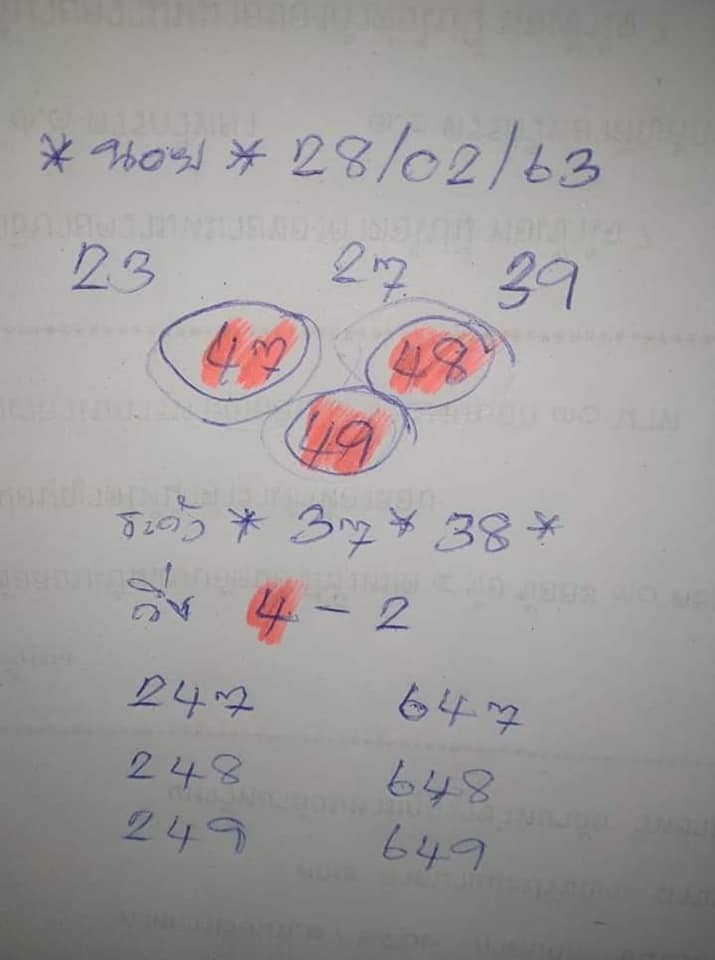 * * 28/02/63
23 27 39
47 48
49
* 37 * 38 *
4 - 2
247 647
248 648
249 649